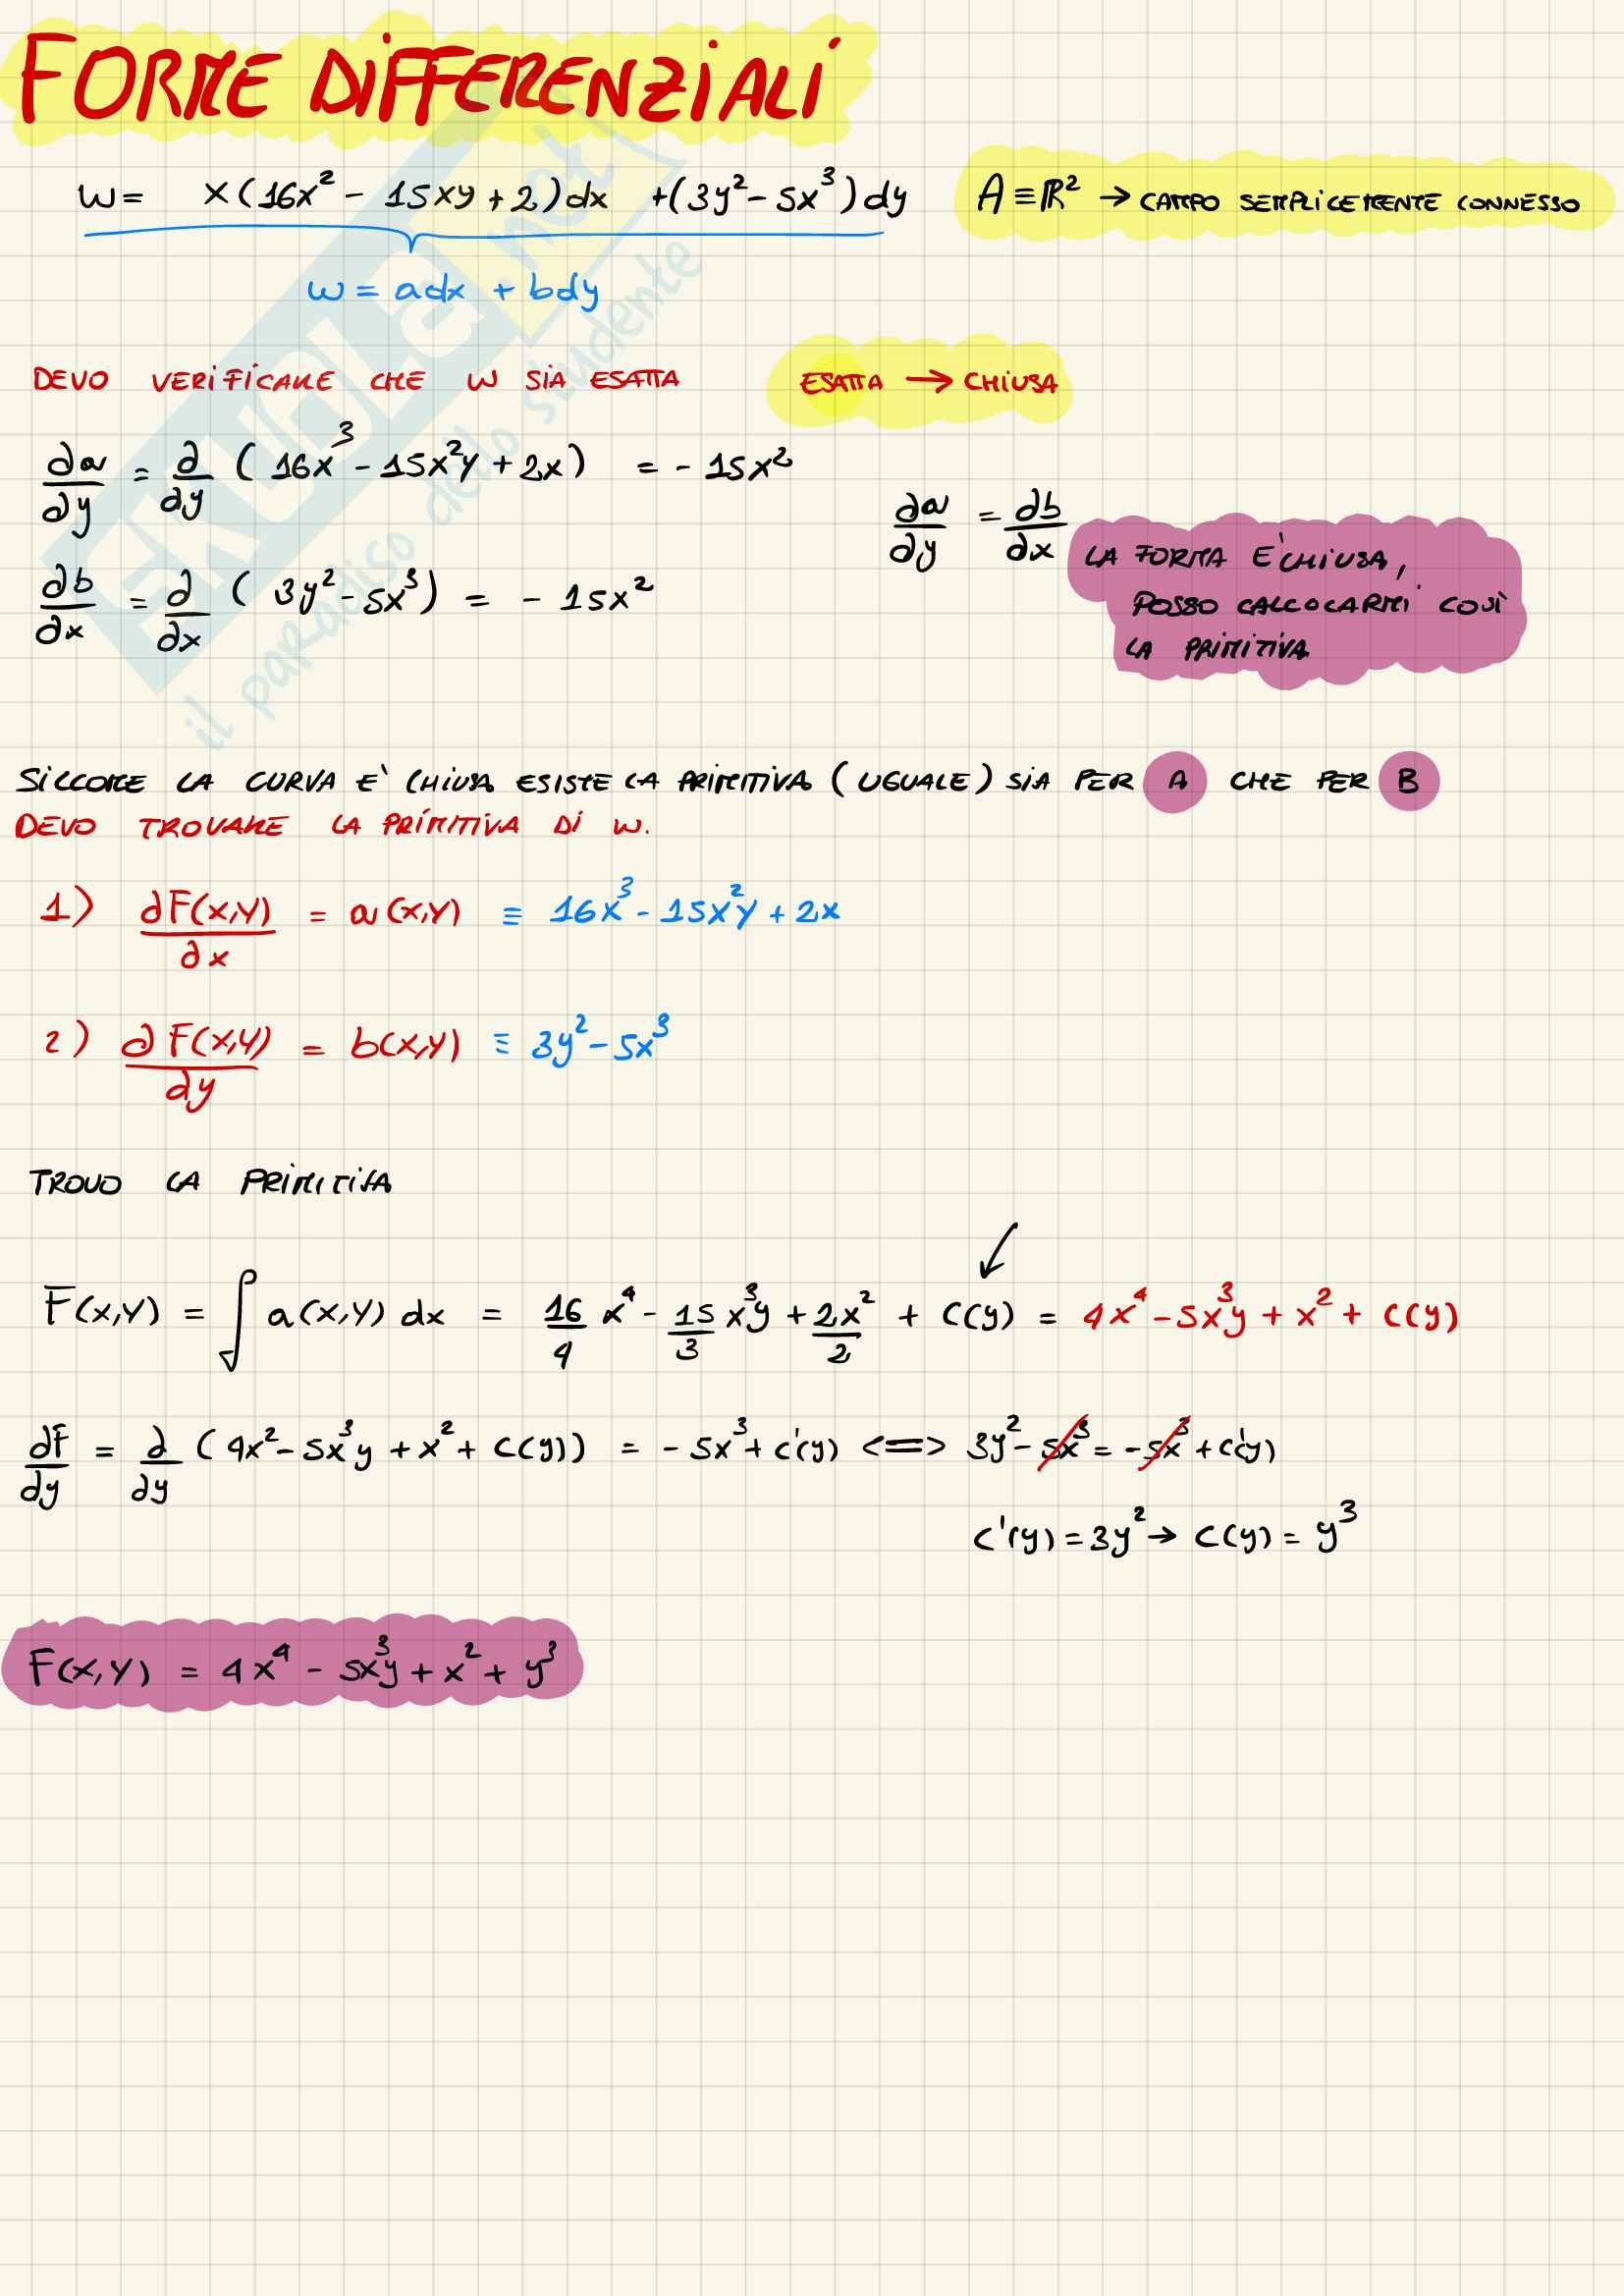 FORME DIFFERENZIALI
w = x(16x² - 15xy + 2)dx + (3y² - 5x³)dy A ≡ ℝ² → CAMPO SEMPLICEMENTE CONNESSO
w = adx + bdy
DEVO VERIFICARE CHE w SIA ESATTA ESATTA → CHIUSA
∂a/∂y = ∂/∂y (16x³ - 15x²y + 2x) = - 15x²
∂a/∂y = ∂b/∂x LA FORMA E' CHIUSA,
POSSO CALCOCARMI COSÌ
LA PRIMITIVA
∂b/∂x = ∂/∂x (3y² - 5x³) = - 15x²
SICCOME LA CURVA E' CHIUSA ESISTE LA PRIMITIVA (UGUALE) SIA PER A CHE PER B
DEVO TROVARE LA PRIMITIVA DI w.
1) ∂F(x,y)/∂x = a(x,y) ≡ 16x³ - 15x²y + 2x
2) ∂F(x,y)/∂y = b(x,y) ≡ 3y² - 5x³
TROVO LA PRIMITIVA
F(x,y) = ∫ a(x,y) dx = 16/4 x⁴ - 15/3 x³y + 2x²/2 + C(y) = 4x⁴ - 5x³y + x² + C(y)
∂F/∂y = ∂/∂y (4x² - 5x³y + x² + C(y)) = - 5x³ + C'(y) <=> 3y² - 5x³ = -5x³ + C'(y)
C'(y) = 3y² → C(y) = y³
F(x,y) = 4x⁴ - 5x³y + x² + y³
SKUOLA.net
il paradiso dello studente